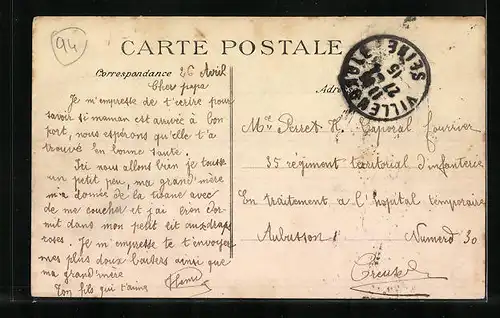 94
CARTE POSTALE
Correspondance 26 Avril
Cher papa
Je m'empresse de t'ecrire pour
savoir si maman est arrivée à bon
port, nous espérons qu'elle t'a
trouvé en bonne santé.
Ici nous allons bien je tousse
un petit peu, ma grand'mère
m'a donné de la tisane avec
de me coucher et j'ai bien dor
mit dans mon petit lit aux draps
roses. Je m'empresse te t'envoyer
mes plus doux baisers ainsi que
ma grand'mère
Ton fils qui t'aime
VILLENEUVE
SEINE
27
15
Adre
Mr Perret H. Caporal fourrier
35 régiment territorial d'infanterie
En traitement a l'hopital temporaire
Aubusson 1 Numero 30
Creuse